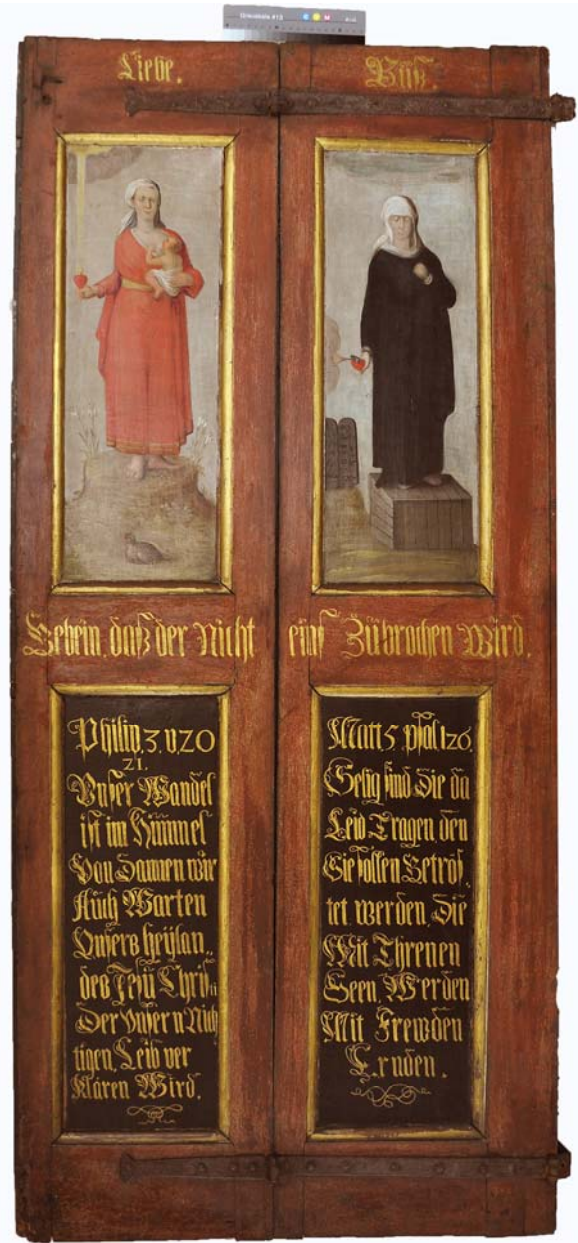 Liebe.
Büß.
Gebein, daß der Nicht eins Zübrochen Wird.
Philip. 3. v. 20
21.
Vnser Wandel
ist im Himmel
Von Dannen wir
Auch Warten
Vnsers heylan„
des Jesü Christi
Der Vnsern Nich
tigen Leib ver
klären Wird.
Matt 5 psal 126.
Selig sind Die da
Leid Tragen, den
Sie sollen Getrös„
tet werden, Die
Mit Threnen
Seen, Werden
Mit Frewden
Ernden.